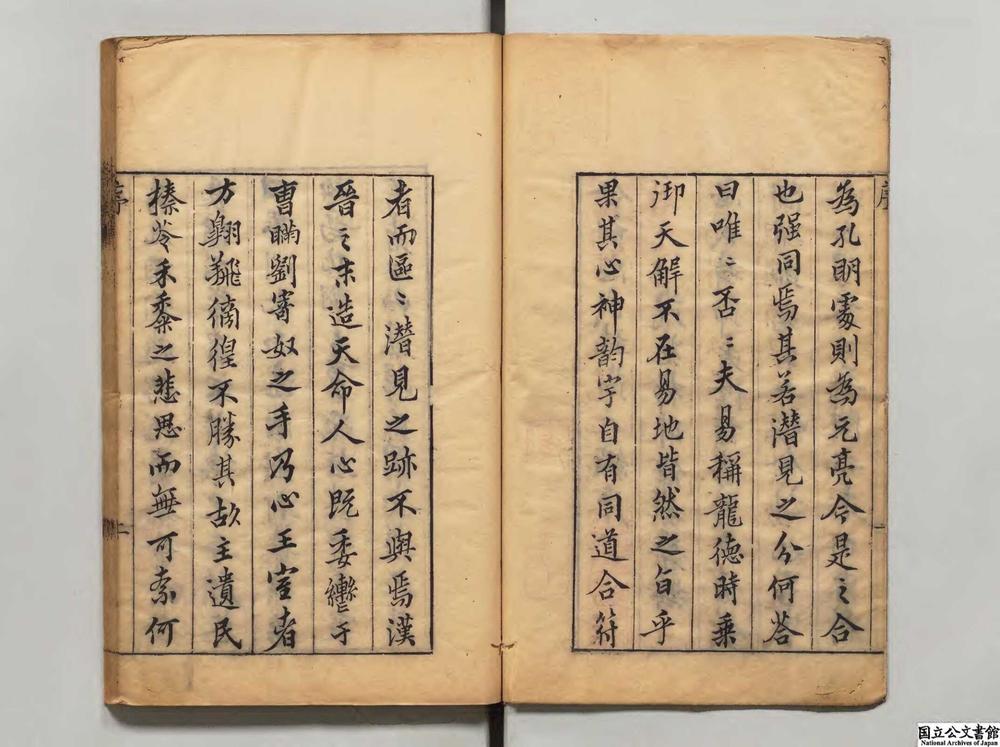 為孔明處則為元亮今是之合
也强同焉其若潛見之分何答
曰唯〻否〻夫易稱龍德時乗
御天解不在易地皆然之旨乎
果其心神韵宇自有同道合符
者而區〻潛見之跡不與焉漢
晉之末造天命人心既委轡于
曹瞞劉寄奴之手乃心王室者
方翱翔徜徨不勝其故主遺民
榛苓禾黍之悲思而無可柰何
序
国立公文書館
National Archives of Japan